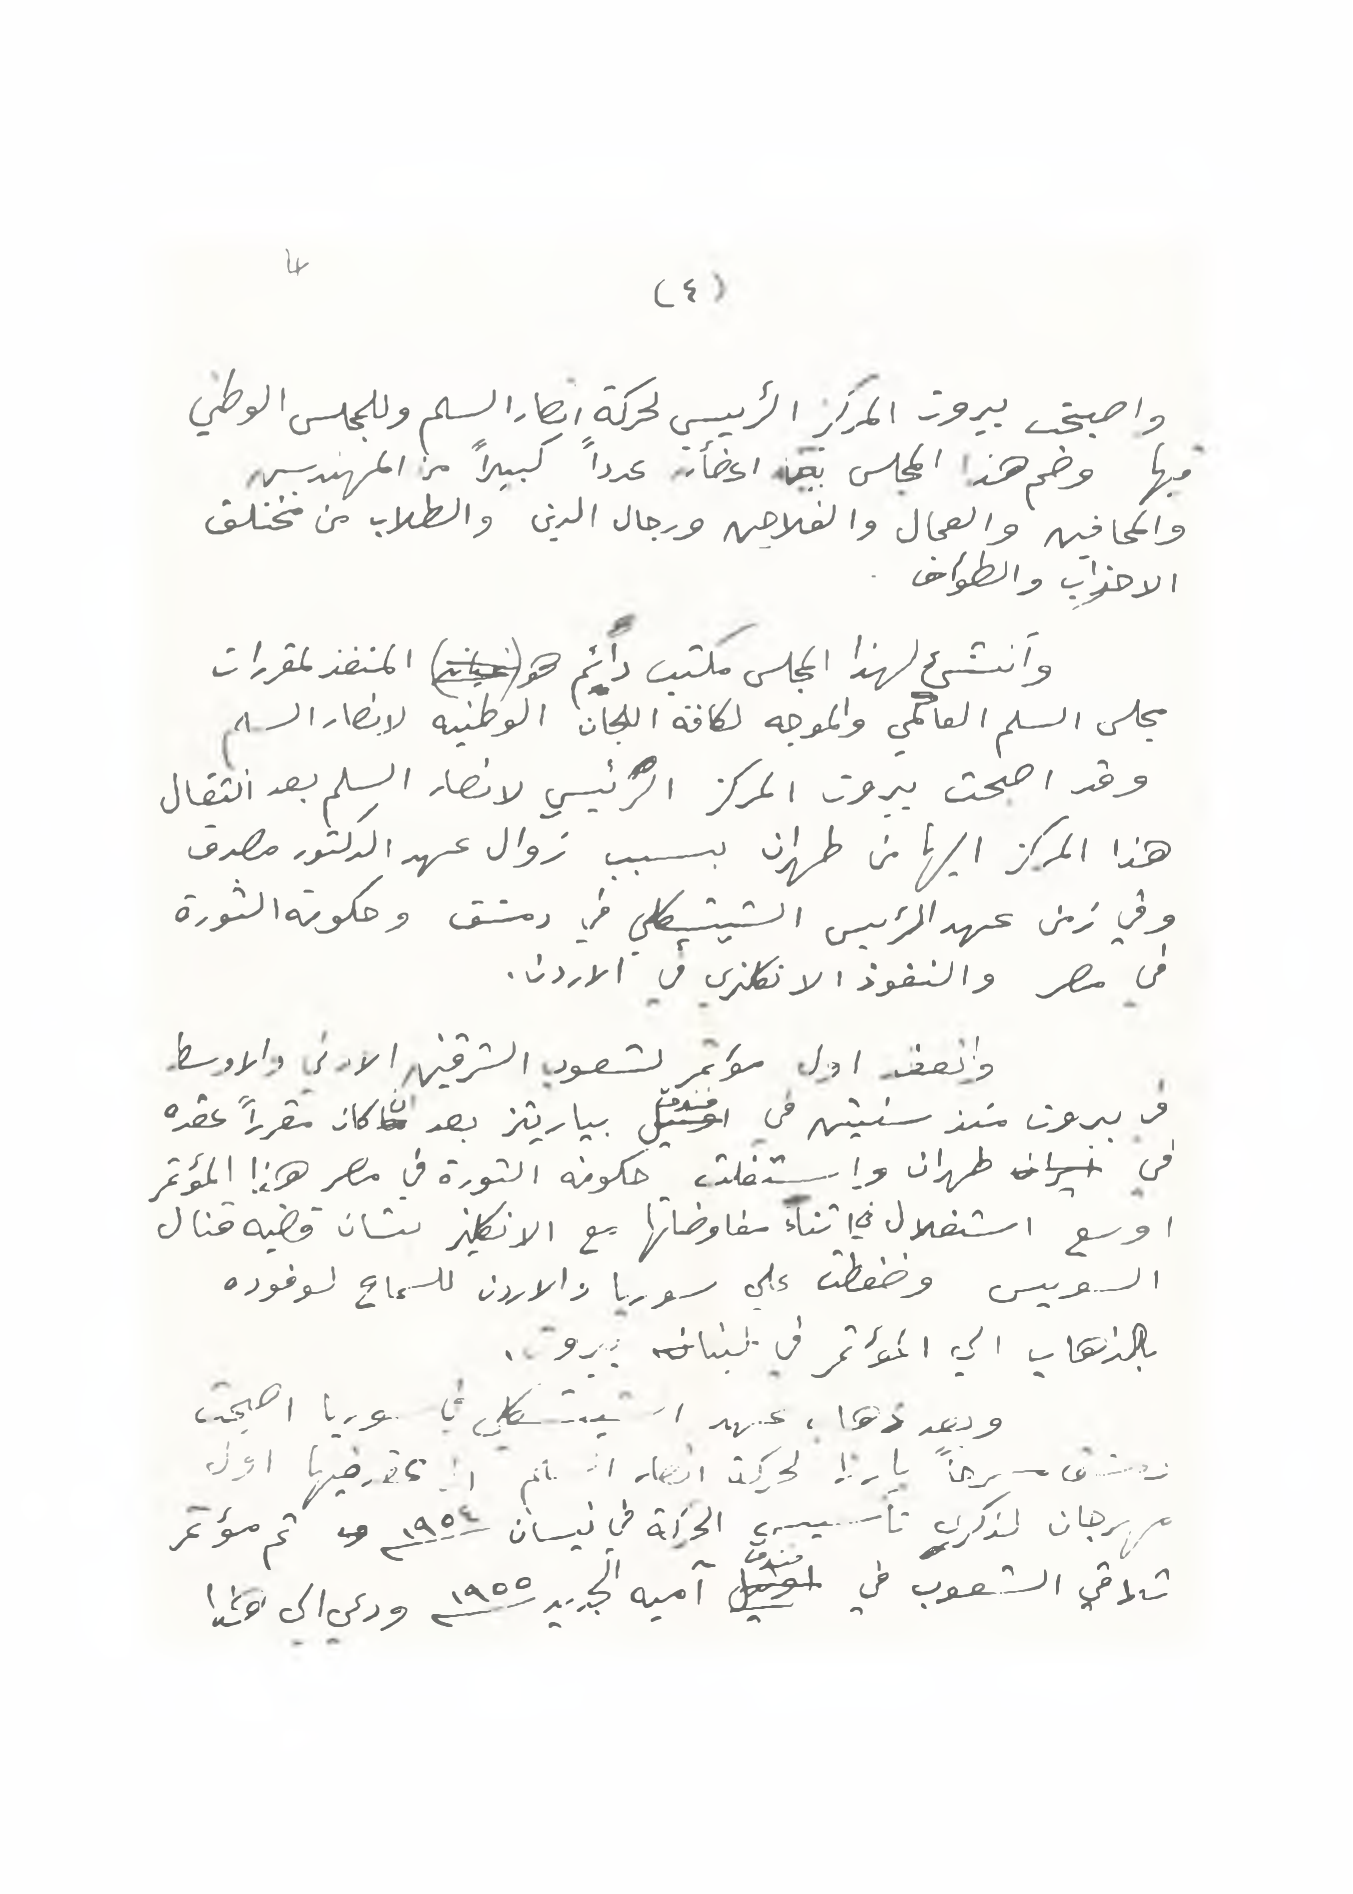 (٤)
واصبحت بيروت المركز الرئيسي لحركة انصار السلم وللمجلس الوطني
فيها وضم هذا المجلس بين اعضائه عدداً كبيراً من المهندسين
والمحامين والعمال والفلاحين ورجال الدين والطلاب من مختلف
الاحزاب والطوائف .
وأنشئ لهذا المجلس مكتب دائم هو المنفذ لمقررات
مجلس السلم العالمي والموجه لكافة اللجان الوطنيه لانصار السلم
وقد اصبحت بيروت المركز الرئيسي لانصار السلم بعد انتقال
هذا المركز اليها من طهران بسبب زوال عهد الدكتور مصدق
وفي زمن عهد الرئيس الشيشكلي في دمشق وحكومة الثورة
في مصر والنفوذ الانكليزي في الاردن .
وانعقد اول مؤتمر لشعوب الشرقين الادنى والاوسط
في بيروت منذ سنتين في فندق بياريتز بعد ان كان مقرراً عقده
في طهران واستغلت حكومه الثورة في مصر هذا المؤتمر
اوسع استغلال في اثناء مفاوضاتها مع الانكليز بشان قضيه قنال
السويس وضغطت على سوريا والاردن للسماح لوفوده
بالذهاب الى المؤتمر في بيروت .
وبعد عهد الشيشكلي في سوريا اصبحت
دمشق مسرحاً بارزا لحركة انصار السلم عقد فيها اول
مهرجان لذكرى تأسيس الحركة في نيسان ١٩٥٤ ثم مؤتمر
تلاقي الشعوب في فندق آميه الجديد ١٩٥٥ ودعي الى هذا